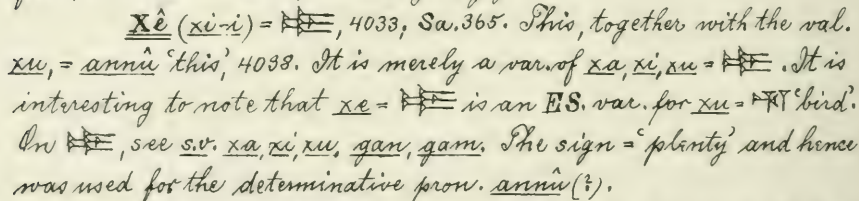 Xê (xi-i) = 𒃶, 4033; Sa. 365. This, together with the val.
xu, = annû 'this', 4038. It is merely a var. of xa, xi, xu = 𒃶. It is
interesting to note that xe = 𒃶 is an ES. var. for xu = 𒄷 'bird'.
On 𒃶, see s.v. xa, xi, xu, gan, gam. The sign = 'plenty' and hence
was used for the determinative pron. annû (?).